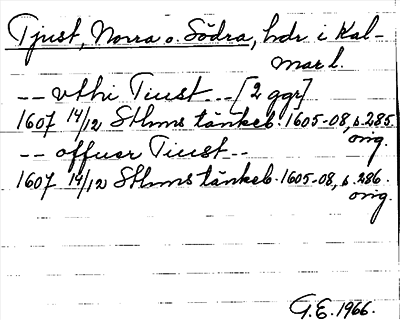 Tjust, Norra o. Södra, hdr i Kal-
mar l.
-- vthi Tiust -- [2 ggr]
1607 14/12 Sthms tänkeb. 1605-08, s. 285.
orig.
-- offuer Tiust --
1607 14/12 Sthms tänkeb. 1605-08, s. 286.
orig.
G.E. 1966.